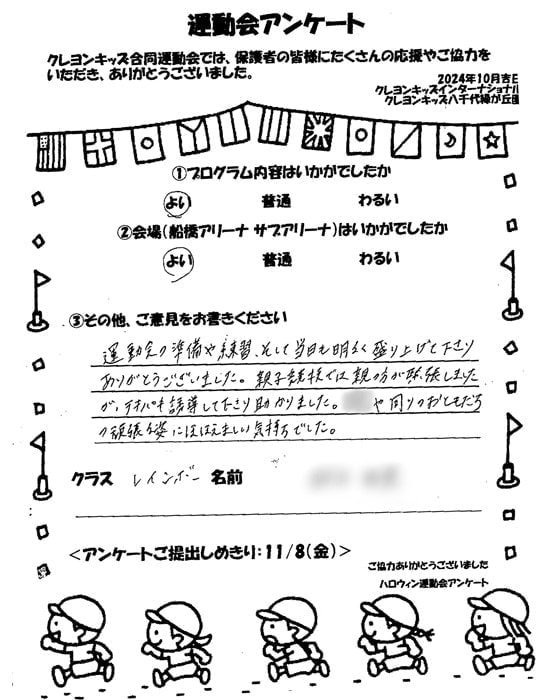 運動会アンケート
クレヨンキッズ合同運動会では、保護者の皆様にたくさんの応援やご協力を
いただき、ありがとうございました。
2024年10月吉日
クレヨンキッズインターナショナル
クレヨンキッズ八千代緑が丘園
①プログラム内容はいかがでしたか
よい 普通 わるい
②会場(船橋アリーナ サブアリーナ)はいかがでしたか
よい 普通 わるい
③その他、ご意見をお書きください
運動会の準備や練習、そして当日も明るく盛り上げて下さり
ありがとうございました。親子競技では親の方が緊張しました
が、テキパキ誘導して下さり助かりました。 や周りのおともだち
の頑張る姿にほほえましい気持ちでした。
クラス レインボー 名前
<アンケートご提出しめきり:11/8(金)>
ご協力ありがとうございました
ハロウィン運動会アンケート